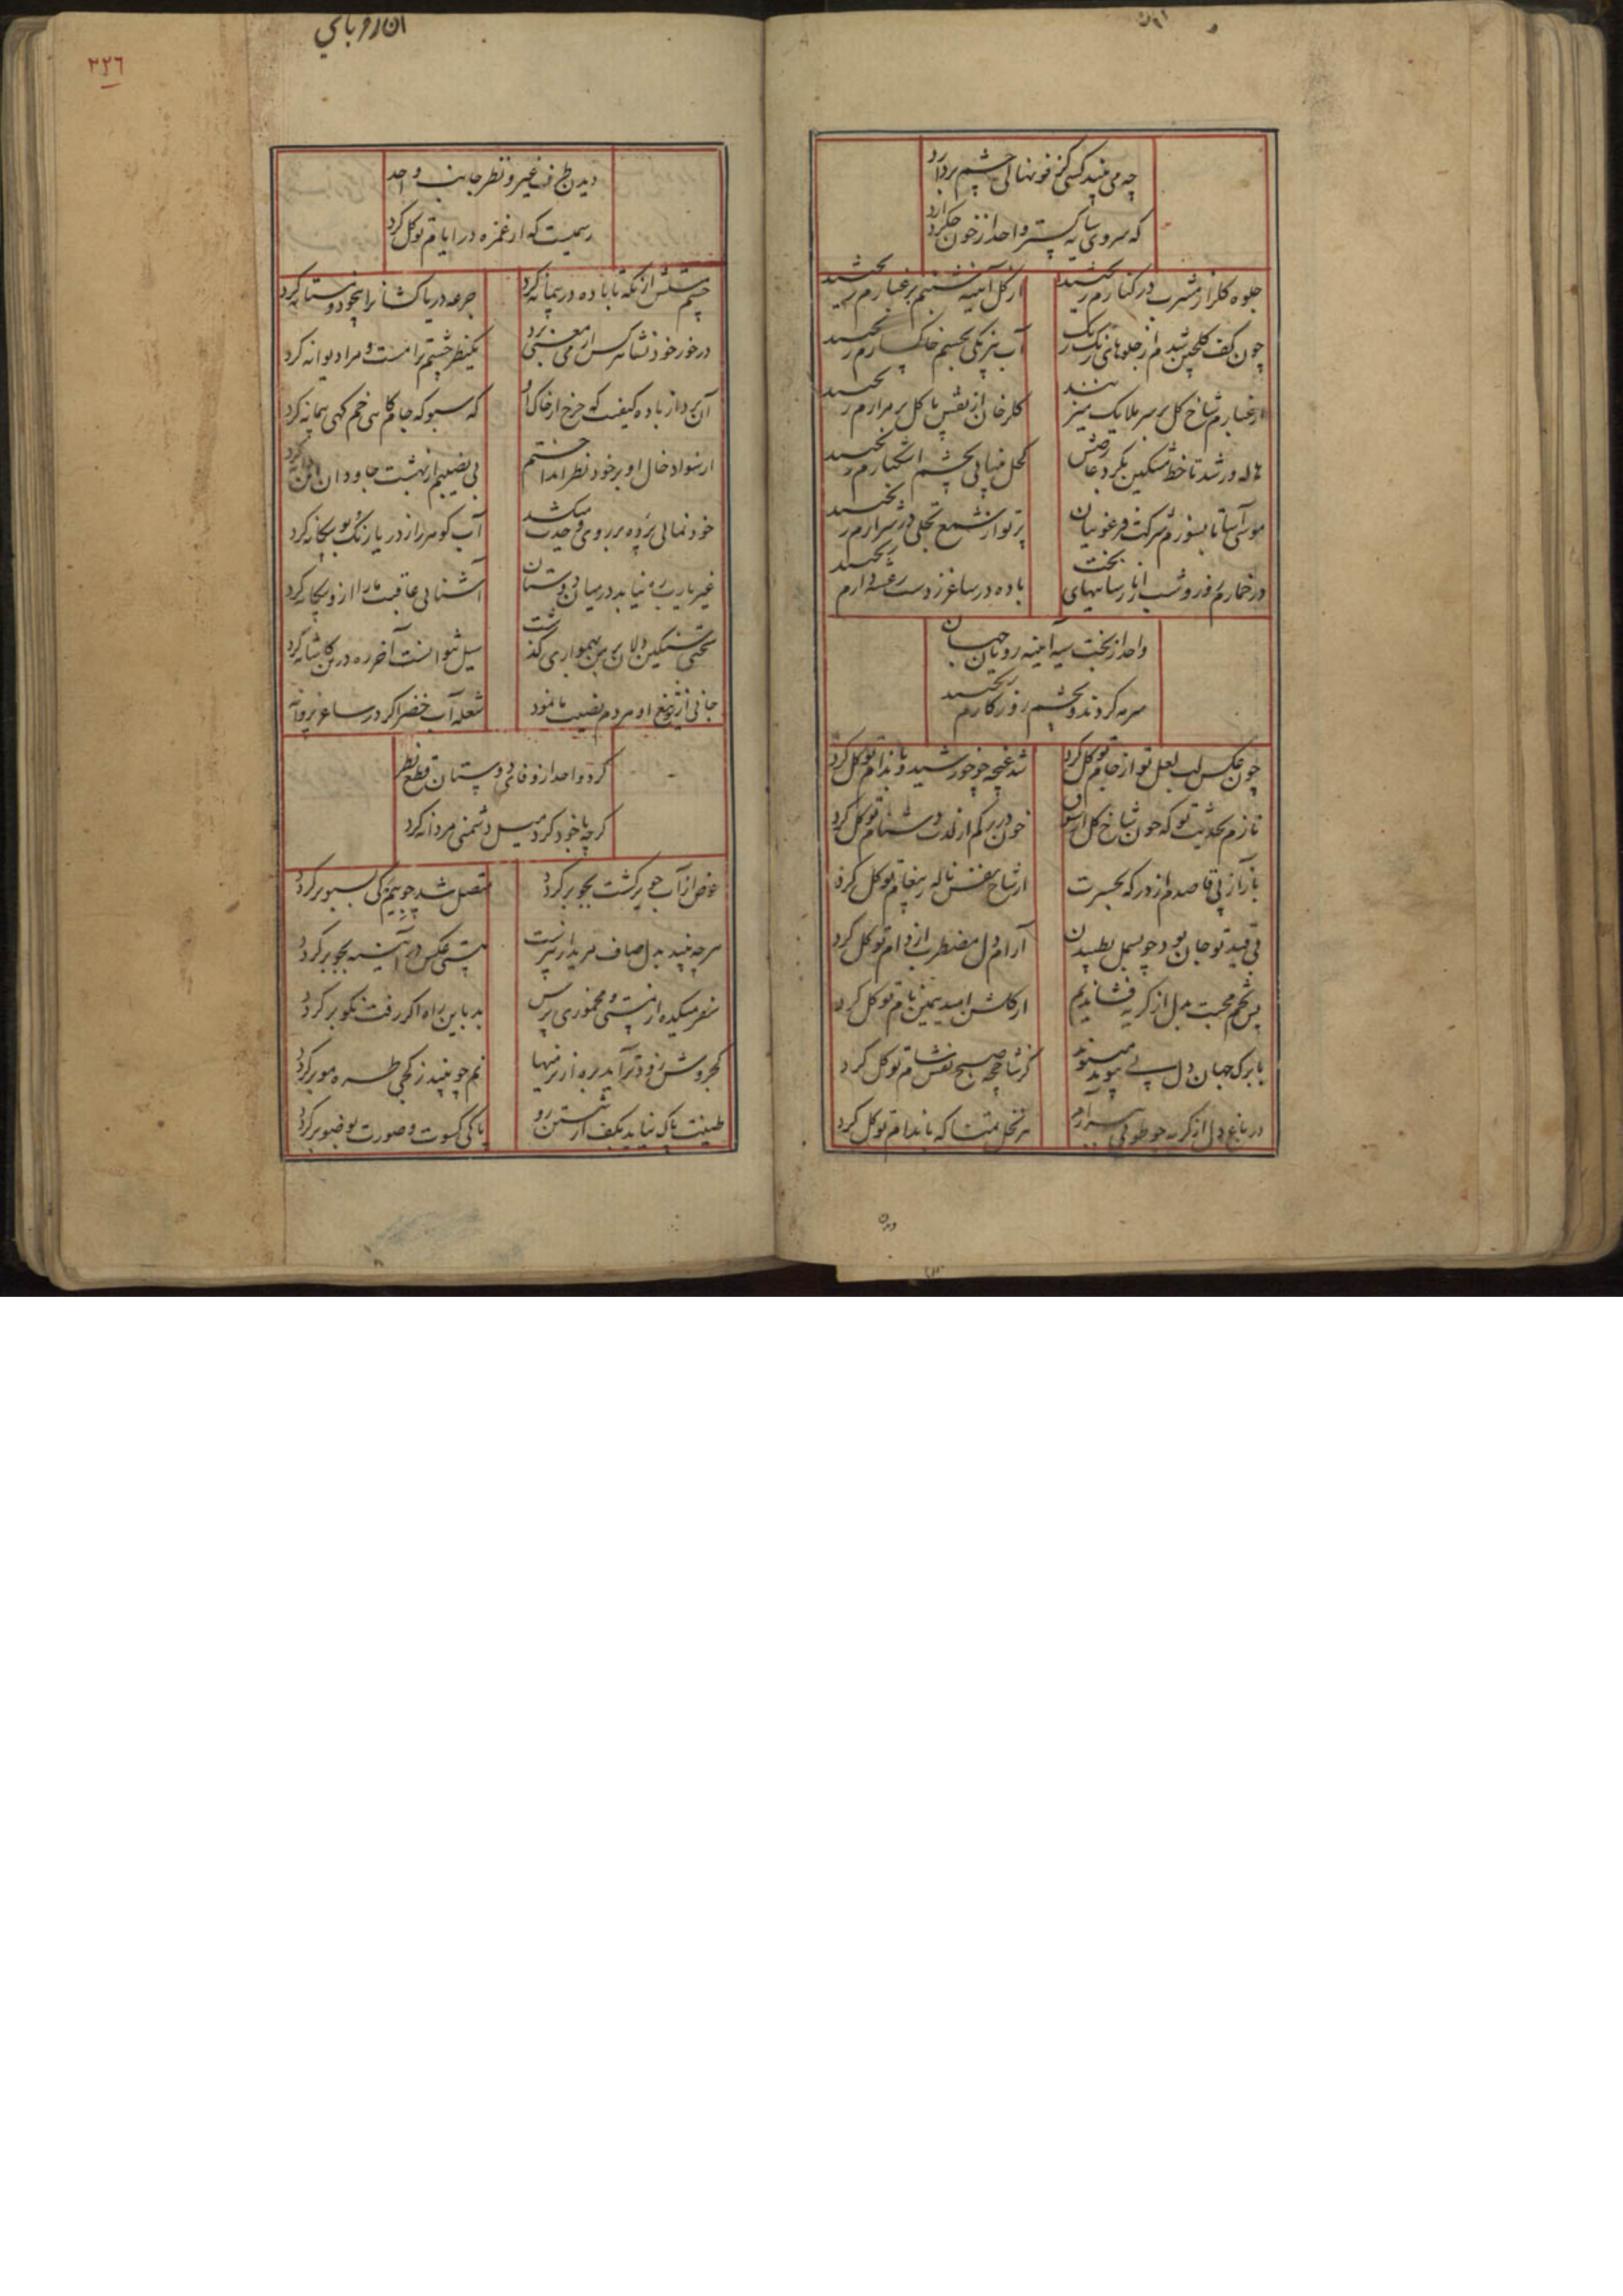 چه می بیند کسی کز خونهای چشم بردارد
که سروی سایه گستر واحد از خون جگر دارد
جلوه کلزار مشرب در کنارم ریختند
از کل آیینه شبنم بر غبارم ریختند
چون کف کلچین شدم از جلوهای رنک رنک
آب نیرنکی بچشم خاکسارم ریختند
از غبارم شاخ کل بر سر ملایک میزنند
کلرخان از نقش پا کل بر مزارم ریختند
هاله ور شد تا خط مشکین بکرد عارضش
کحل بینایی بچشم اشکبارم ریختند
موسی آسا تا بسوزم سرکشت فرعونیان
پرتو از شمع تجلی در شرارم ریختند
در خمارم روز و شب از نارساییهای بخت
باده در ساغر ز دست رعشه دارم ریختند
واحد از بخت سیه آیینه رویان جهان
سرمه کردند و بچشم روزکارم ریختند
چون عکس لب لعل تو از جام تو کل کرد
شد غنچه چو خورشید و باندام تو کل کرد
نازم بحدیث تو که چون شاخ کل از شوق
خون در رکم از لذت دشنام تو کل کرد
باز آز پی قاصدم از در که بحسرت
از شاخ نفس ناله پیغام تو کل کرد
بی قید تو جان بود چو بسمل بطپیدن
آرام دل مضطرب از دام تو کل کرد
بس تخم محبت بدل از کریه فشاندیم
از کلشن امید همین نام تو کل کرد
با برک جهان دل پی پیوند
کز شاخچه صبح نفس شام تو کل کرد
در باغ دل از کریه چو طوبی
هر نخل تمنا که باندام تو کل کرد
ان ر و بای
۲۲۶
دیدن طرف غیر و نظر جانب واحد
رسمیست که از غمزه در ایام تو کل کرد
چشم مستش از نکه تا باده در پیمانه کرد
جرعه دریاکشانرا بیخود و مستانه کرد
در خور خود نشائه هر کس از می معنی برد
یکنظر چشم ترا مست و مرا دیوانه کرد
آن برد از باده کیفیت که چرخ از خاک او
که سبو که جام کاهی خم کهی پیمانه کرد
از سواد خال او بر خود نظر انداختم
بی نصیبم از بهشت جاودان این دانه کرد
خود نمایی پرده بر روی وحدت میکشد
آب کوهر را ز دریا رنک و بو بیکانه کرد
غیر یا رب ره نیابد در میان دوستان
آشنایی عاقبت ما را از و بیکانه کرد
سختی سنکین دلان بر من بهمواری کذشت
سیل نتوانست آخر ره درین کاشانه کرد
جانی از تیغ او مردم نصیب ما نمود
شعله آب خضر اکر در ساغر پروانه
کرد واحد از وفای دوستان قطع نظر
کرچه با خود کرد میل دشمنی مردانه کرد
عوض از آب جو برکشت بجو برکردد
متصل شد چو بیم کی بسبو برکردد
هرچه بیند بدل صاف هریدار نیست
هستی عکس در آیینه بجو برکردد
سفر میکده از مستی و مخموری پرس
بد باین راه اکر رفت نکو برکردد
کجروش زود برآید بره از تنبیها
نم چو بیند ز کجی طره مو برکردد
طینت پاک نیاید بکف از شستن رو
پاکی کسوت و صورت بوضو برکردد
دیدن